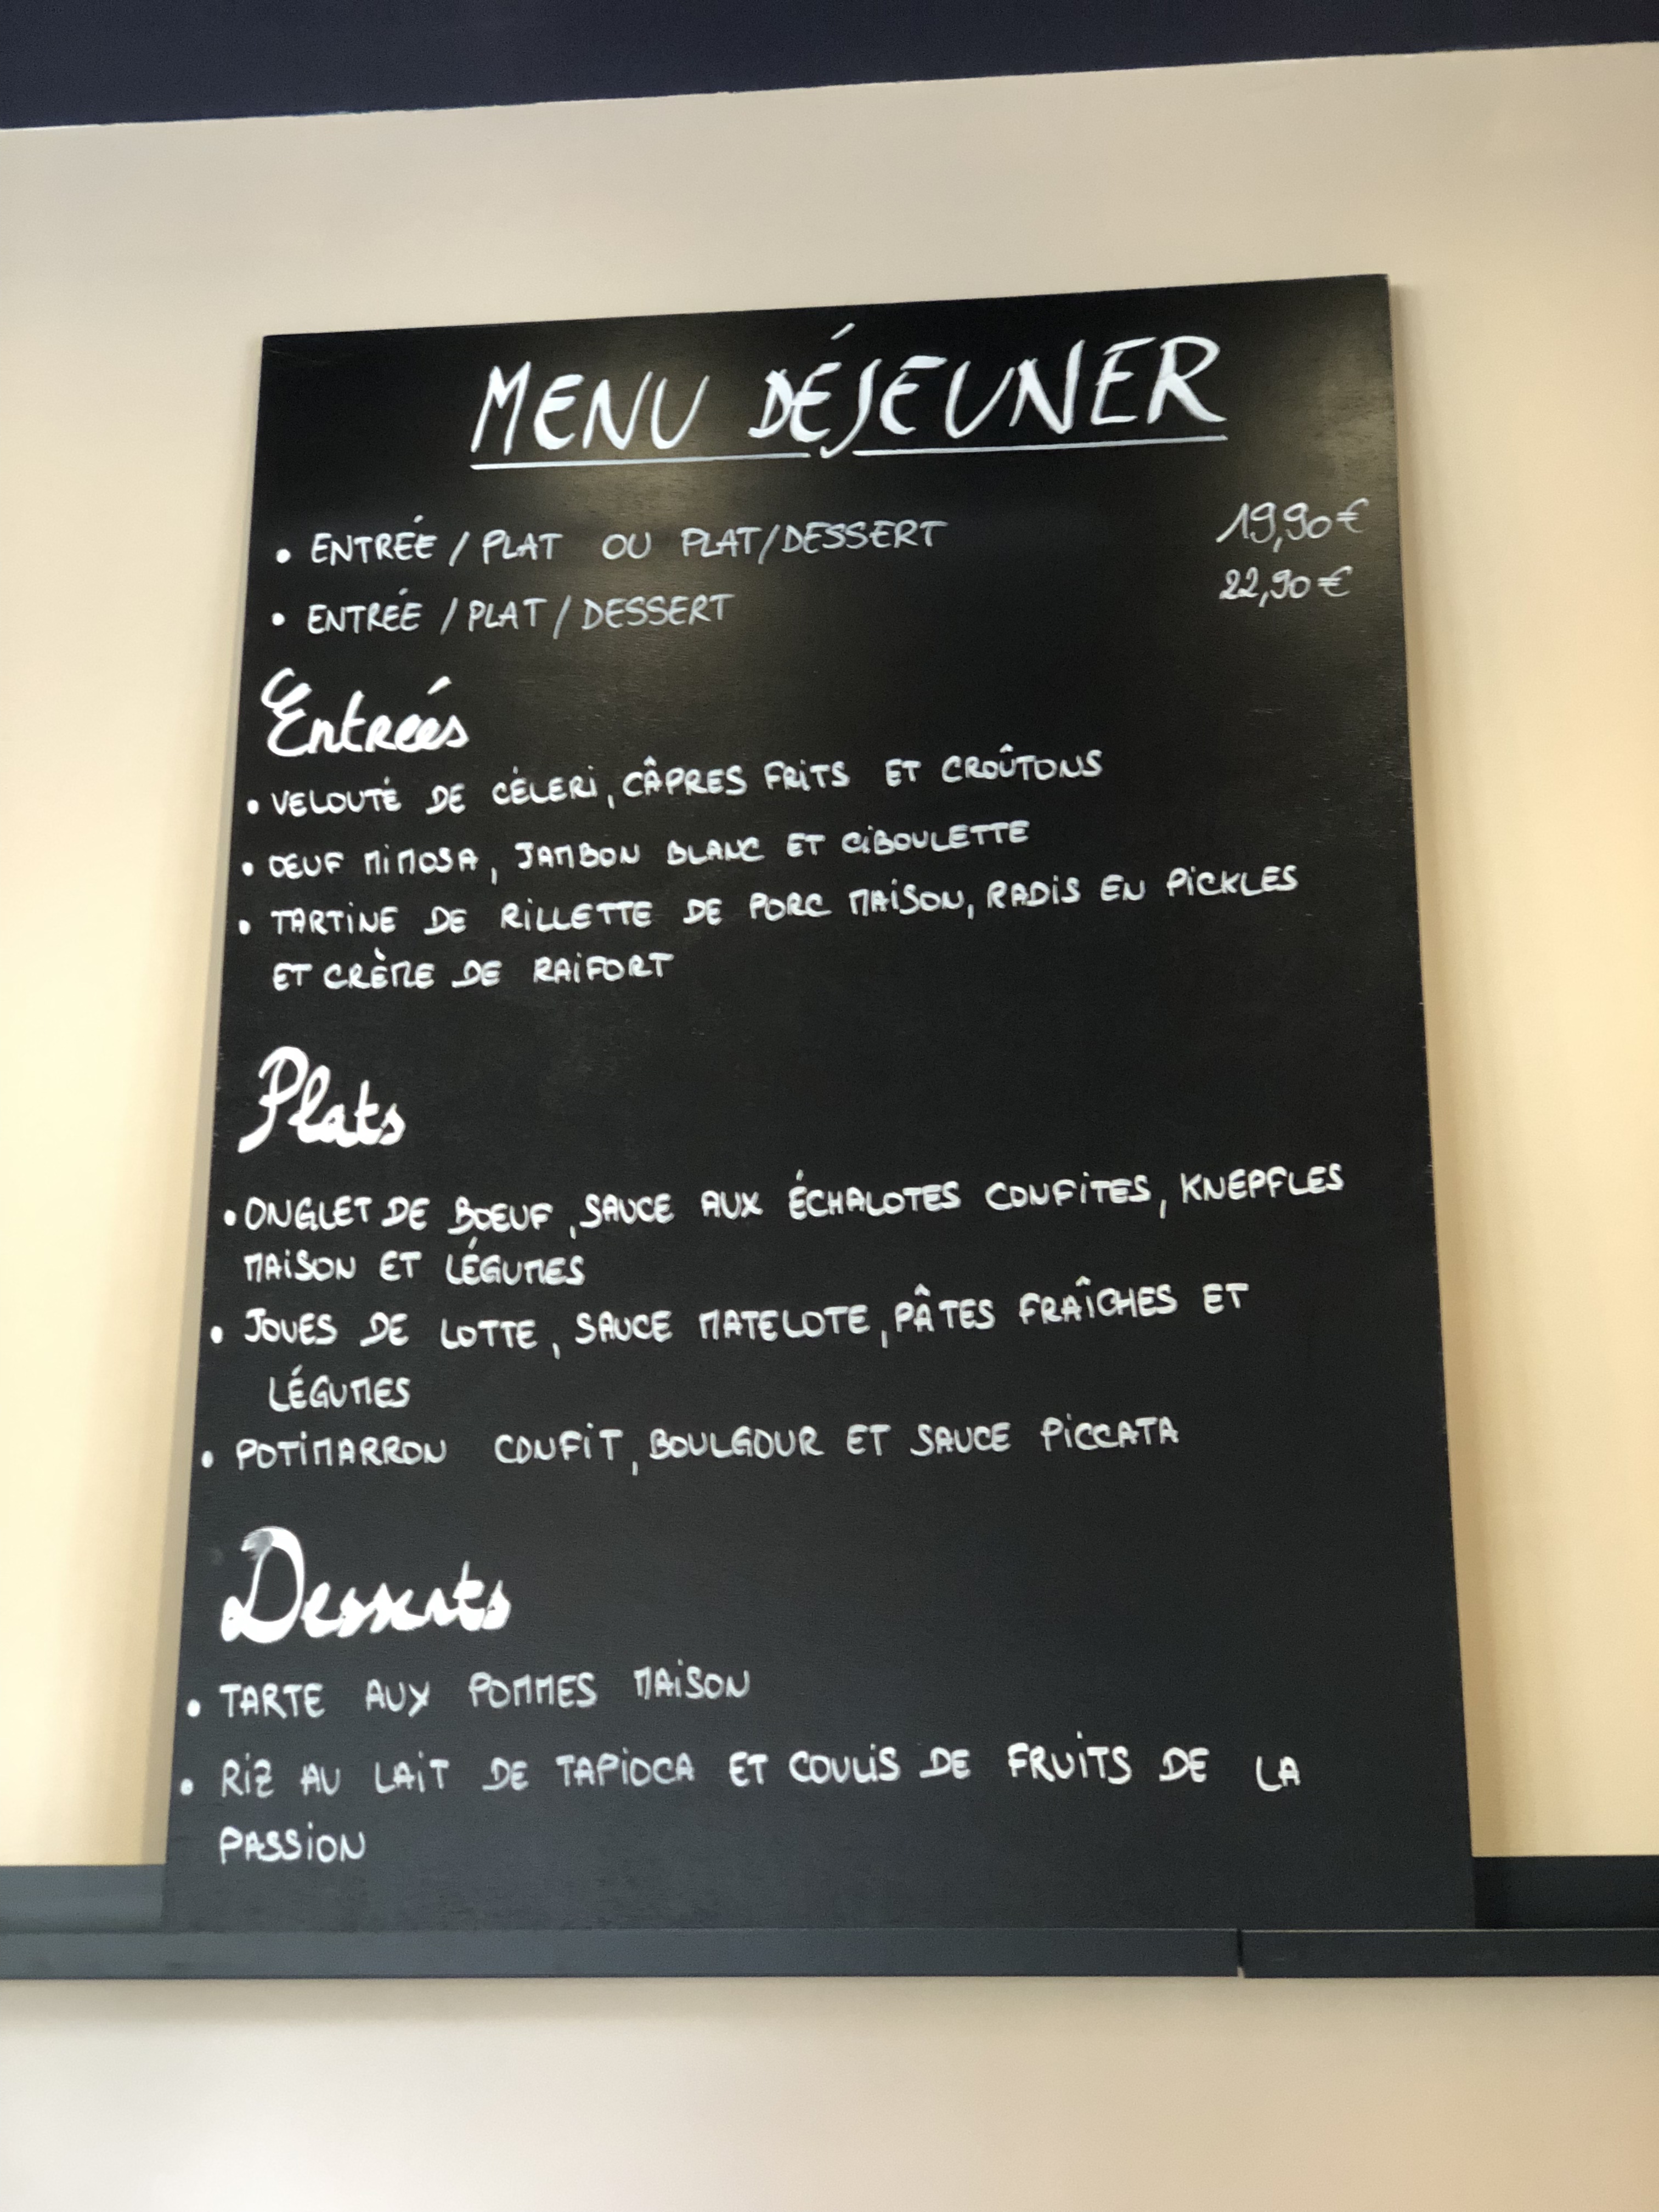 MENU DÉJEUNER
• ENTRÉE / PLAT OU PLAT/DESSERT 19,90€
• ENTRÉE / PLAT / DESSERT 22,90€
Entrées
• VELOUTÉ DE CÉLERI, CÂPRES FRITS ET CROÛTONS
• OEUF MIMOSA, JAMBON BLANC ET CIBOULETTE
• TARTINE DE RILLETTE DE PORC MAISON, RADIS EN PICKLES
ET CRÈME DE RAIFORT
Plats
• ONGLET DE BOEUF, SAUCE AUX ÉCHALOTES CONFITES, KNEPFLES
MAISON ET LÉGUMES
• JOUES DE LOTTE, SAUCE MATELOTE, PÂTES FRAÎCHES ET
LÉGUMES
• POTIMARRON CONFIT, BOULGOUR ET SAUCE PICCATA
Desserts
• TARTE AUX POMMES MAISON
• RIZ AU LAIT DE TAPIOCA ET COULIS DE FRUITS DE LA
PASSION